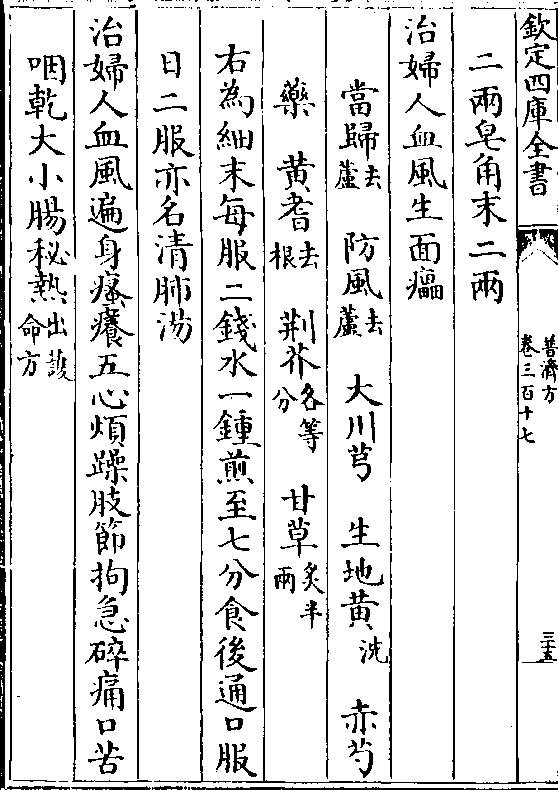 欽定四庫全書
普濟方
卷三百十七
三十五
二兩皂角末二兩
治婦人血風生面瘟
當歸去蘆 防風去蘆 大川芎 生地黃洗 赤芍
藥 黃耆去根 荆芥各等分 甘草炙半兩
右為細末每服二錢水一鍾煎至七分食後通口服
日二服亦名清肺湯
治婦人血風遍身瘙癢五心煩躁肢節拘急碎痛口苦
咽乾大小腸秘熱出護命方